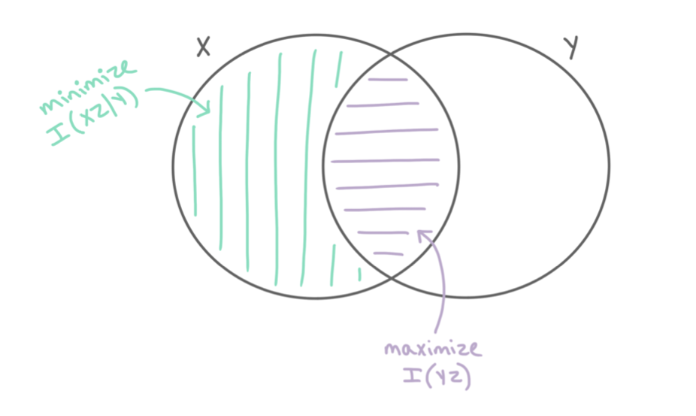 X
Y
minimize
I(XZ|Y)
maximize
I(YZ)